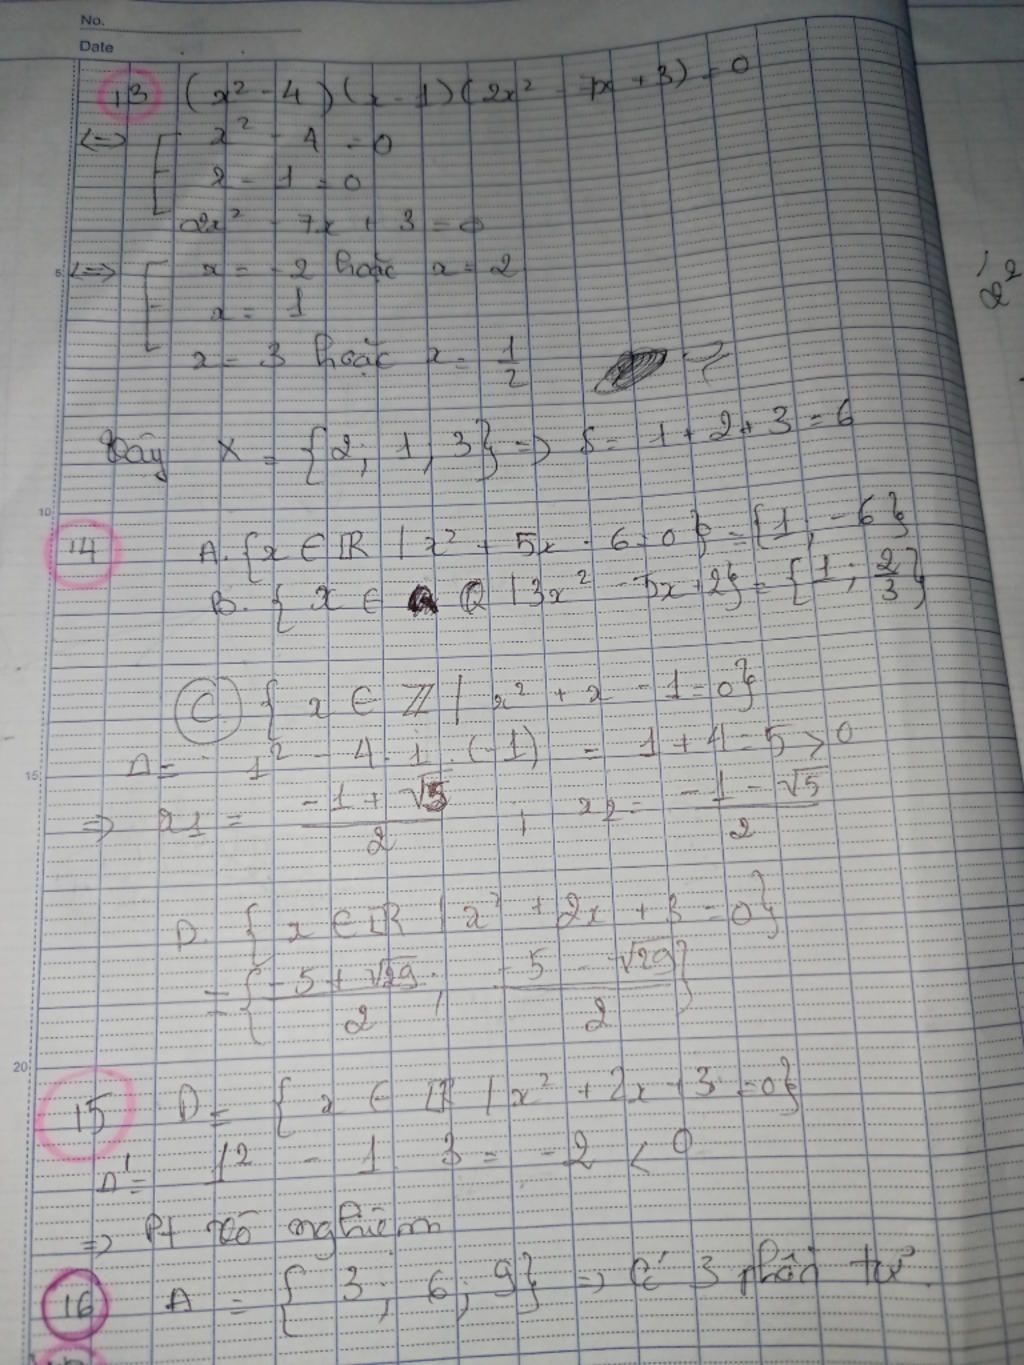 No.
Date
13 (x² - 4)(x - 1)(2x² - 7x + 3) = 0
<=> [ x² - 4 = 0
x - 1 = 0
2x² - 7x + 3 = 0
5
<=> [ x = -2 hoặc x = 2
x = 1
x = 3 hoặc x = 1/2
Vậy X = {2; 1; 3} => S = 1 + 2 + 3 = 6
10
14 A. {x ∈ ℝ | x² + 5x - 6 = 0} = {1; -6}
B. {x ∈ Q | 3x² - 5x + 2} = {1; 2/3}
C. {x ∈ ℤ | x² + x - 1 = 0}
Δ = 1² - 4.1.(-1) = 1 + 4 = 5 > 0
15
=> x1 = (-1 + √5)/2 ; x2 = (-1 - √5)/2
D. {x ∈ ℝ | x² + 2x + 3 = 0}
= {(-5 + √29)/2 ; (-5 - √29)/2}
20
15 D = {x ∈ ℝ | x² + 2x + 3 = 0}
Δ' = 1² - 1.3 = -2 < 0
=> Pt vô nghiệm
16 A = {3; 6; 9} => Có 3 phần tử.